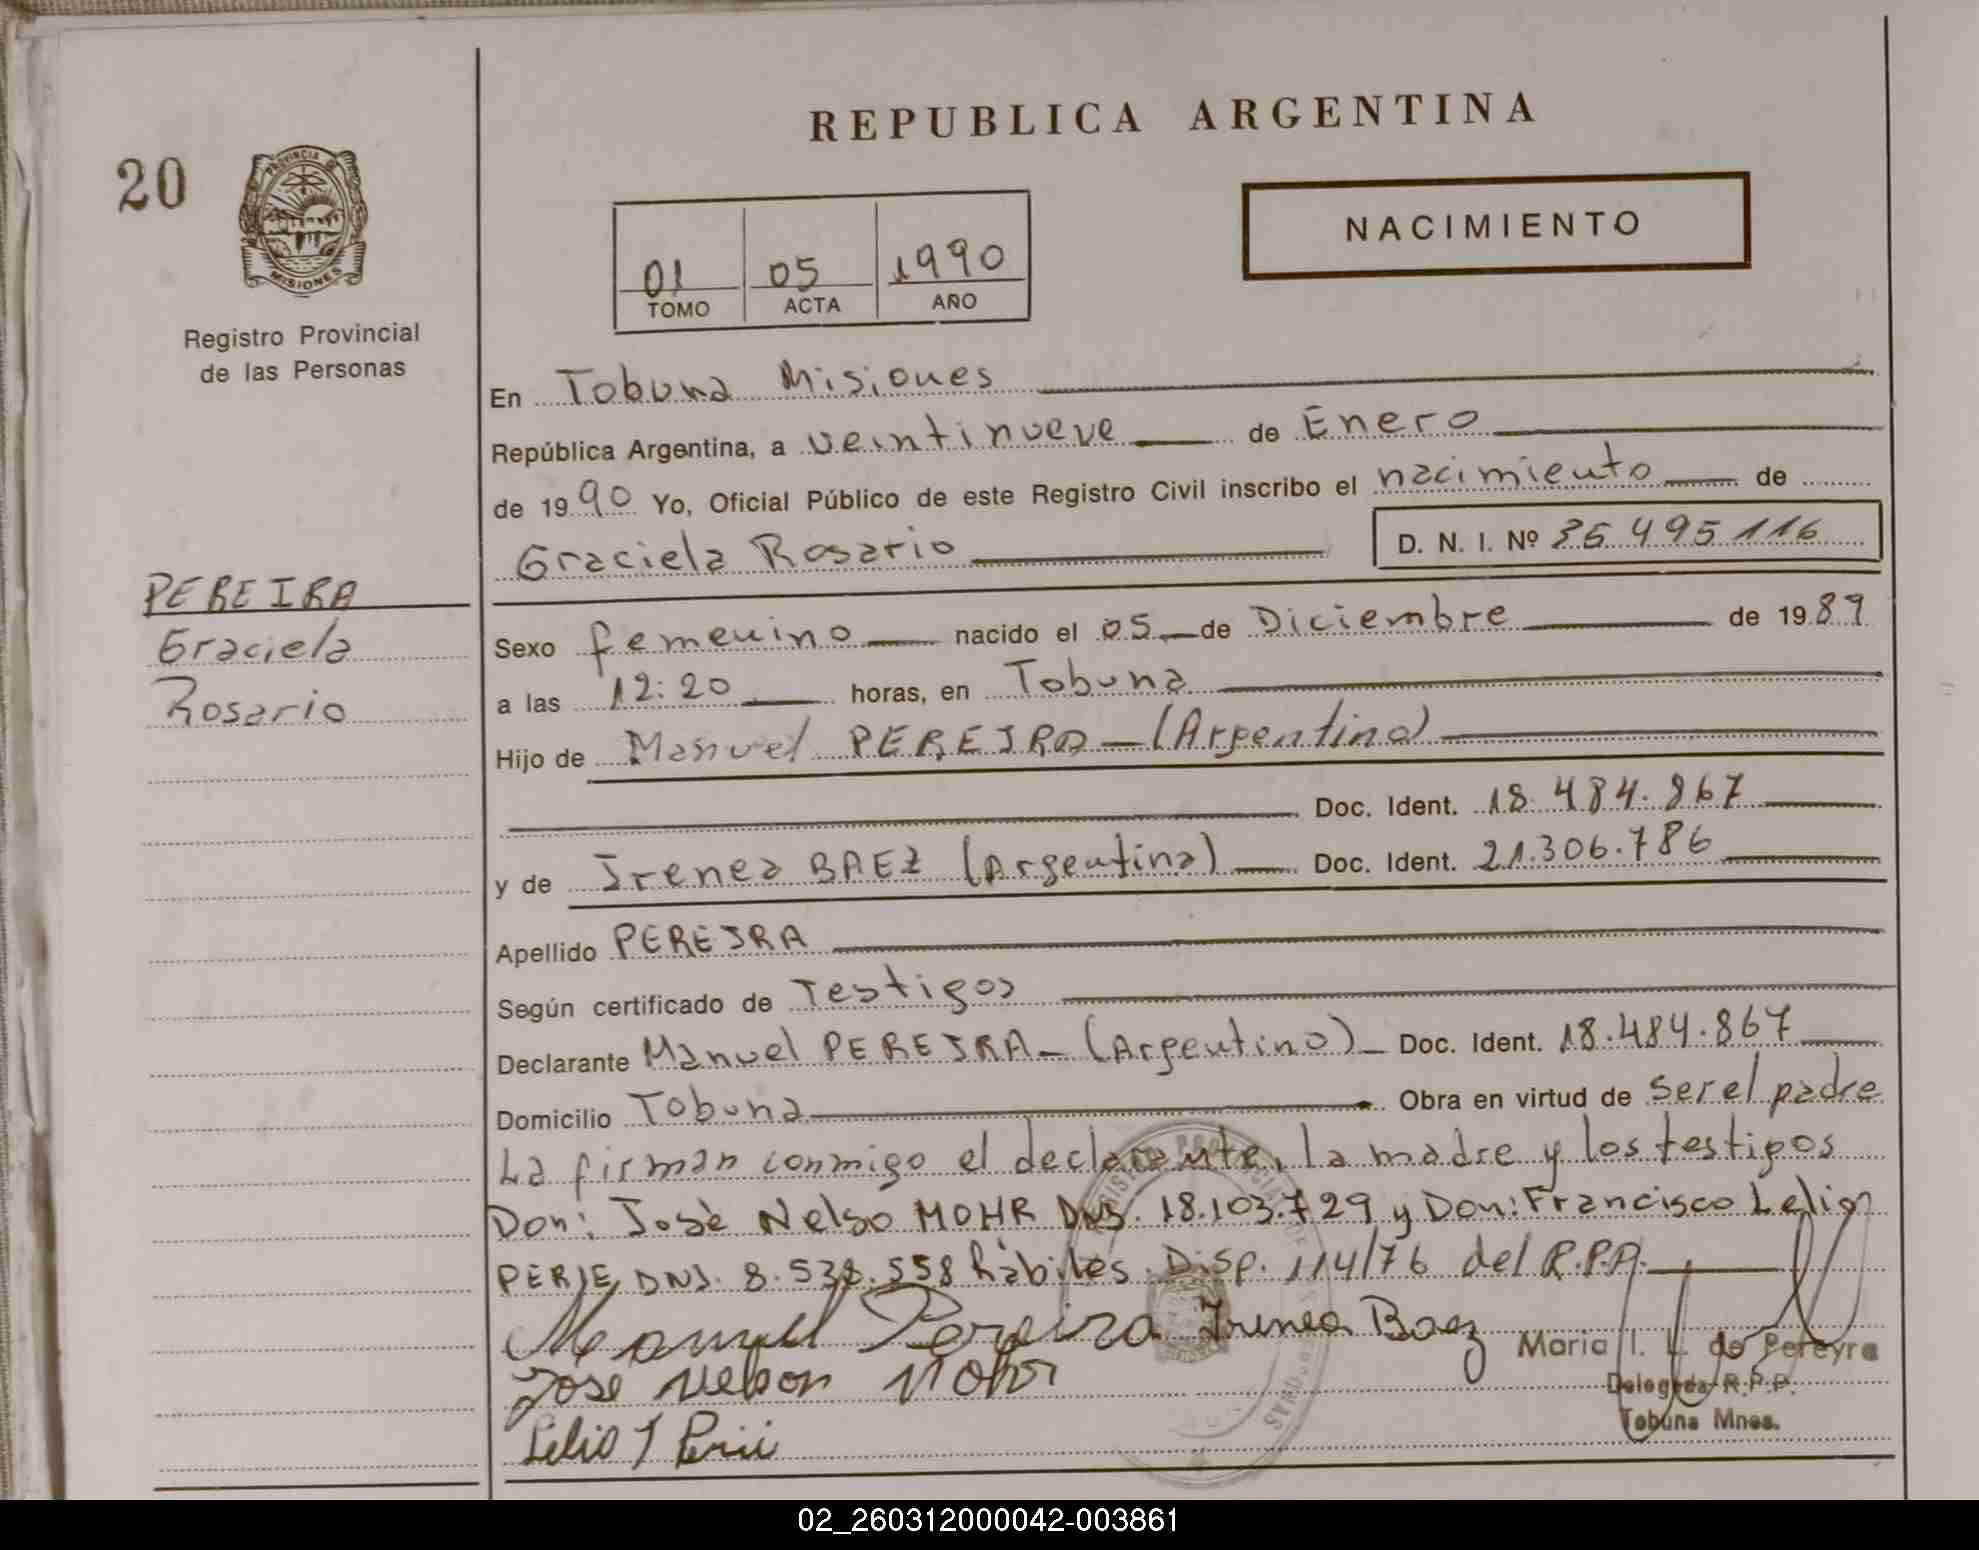 REPUBLICA ARGENTINA
20
PROVINCIA DE
MISIONES
NACIMIENTO
01 05 1990
TOMO ACTA AÑO
Registro Provincial
de las Personas
En Tobuna Misiones
República Argentina, a veintinueve de Enero
de 1990 Yo, Oficial Público de este Registro Civil inscribo el nacimiento de
Graciela Rosario D. N. I. Nº 35 495 116
PEREIRA
Graciela
Rosario
Sexo femenino nacido el 05 de Diciembre de 1989
a las 12:20 horas, en Tobuna
Hijo de Manuel PEREIRA - (Argentino)
Doc. Ident. 18.484.867
y de Irenea BAEZ (Argentina) Doc. Ident. 21.306.786
Apellido PEREIRA
Según certificado de Testigos
Declarante Manuel PEREIRA - (Argentino) - Doc. Ident. 18.484.867
Domicilio Tobuna Obra en virtud de ser el padre
La firman conmigo el declarante, la madre y los testigos
Don: José Nelso MOHR DNI. 18.103.729 y Don: Francisco Lelio
PERIE DNI. 8.538.558 hábiles. Disp. 114/76 del R.P.P.
Manuel Pereira Irenea Baez
Maria I. L. de Pereyra
Jose Nelson Mohr
Delegada R.P.P.
Tobuna Mnes.
Lelio
02_260312000042-003861